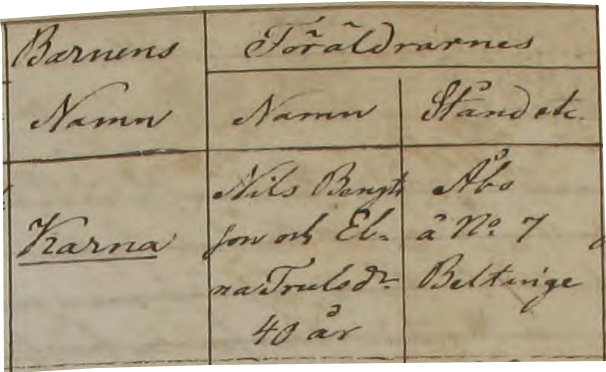 Barnens
Namn
Föräldrarnes
Namn
Stånd etc.
Karna
Nils Bengts
son och El-
na Trulsdr
40 år
Åbo
å No. 7
Beltinge